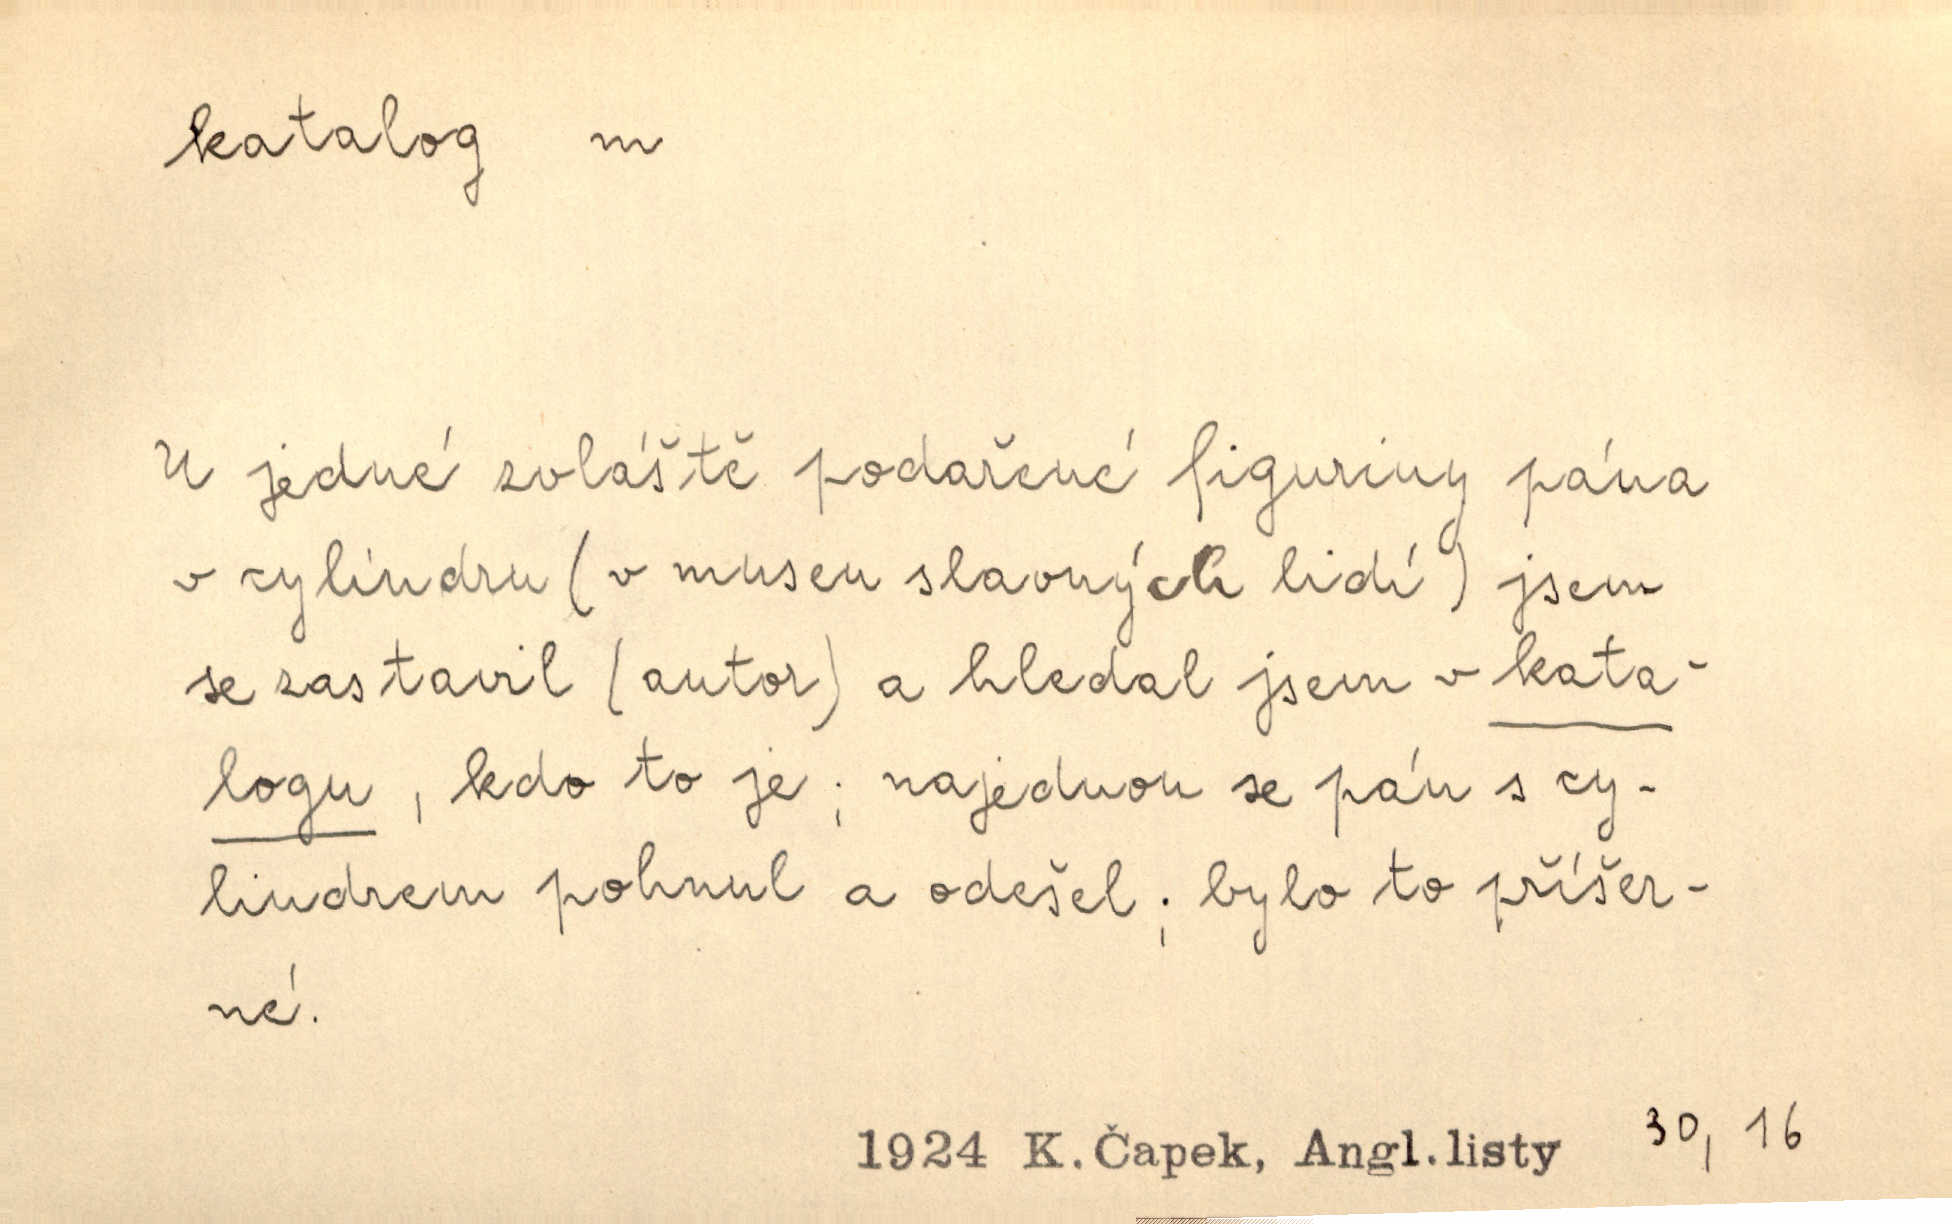 katalog m
U jedné zvláště podařené figuriny pána
v cylindru (v museu slavných lidí) jsem
se zastavil (autor) a hledal jsem v kata-
logu, kdo to je; najednou se pán s cy-
lindrem pohnul a odešel; bylo to příšer-
né.
1924 K.Čapek, Angl.listy 30, 16